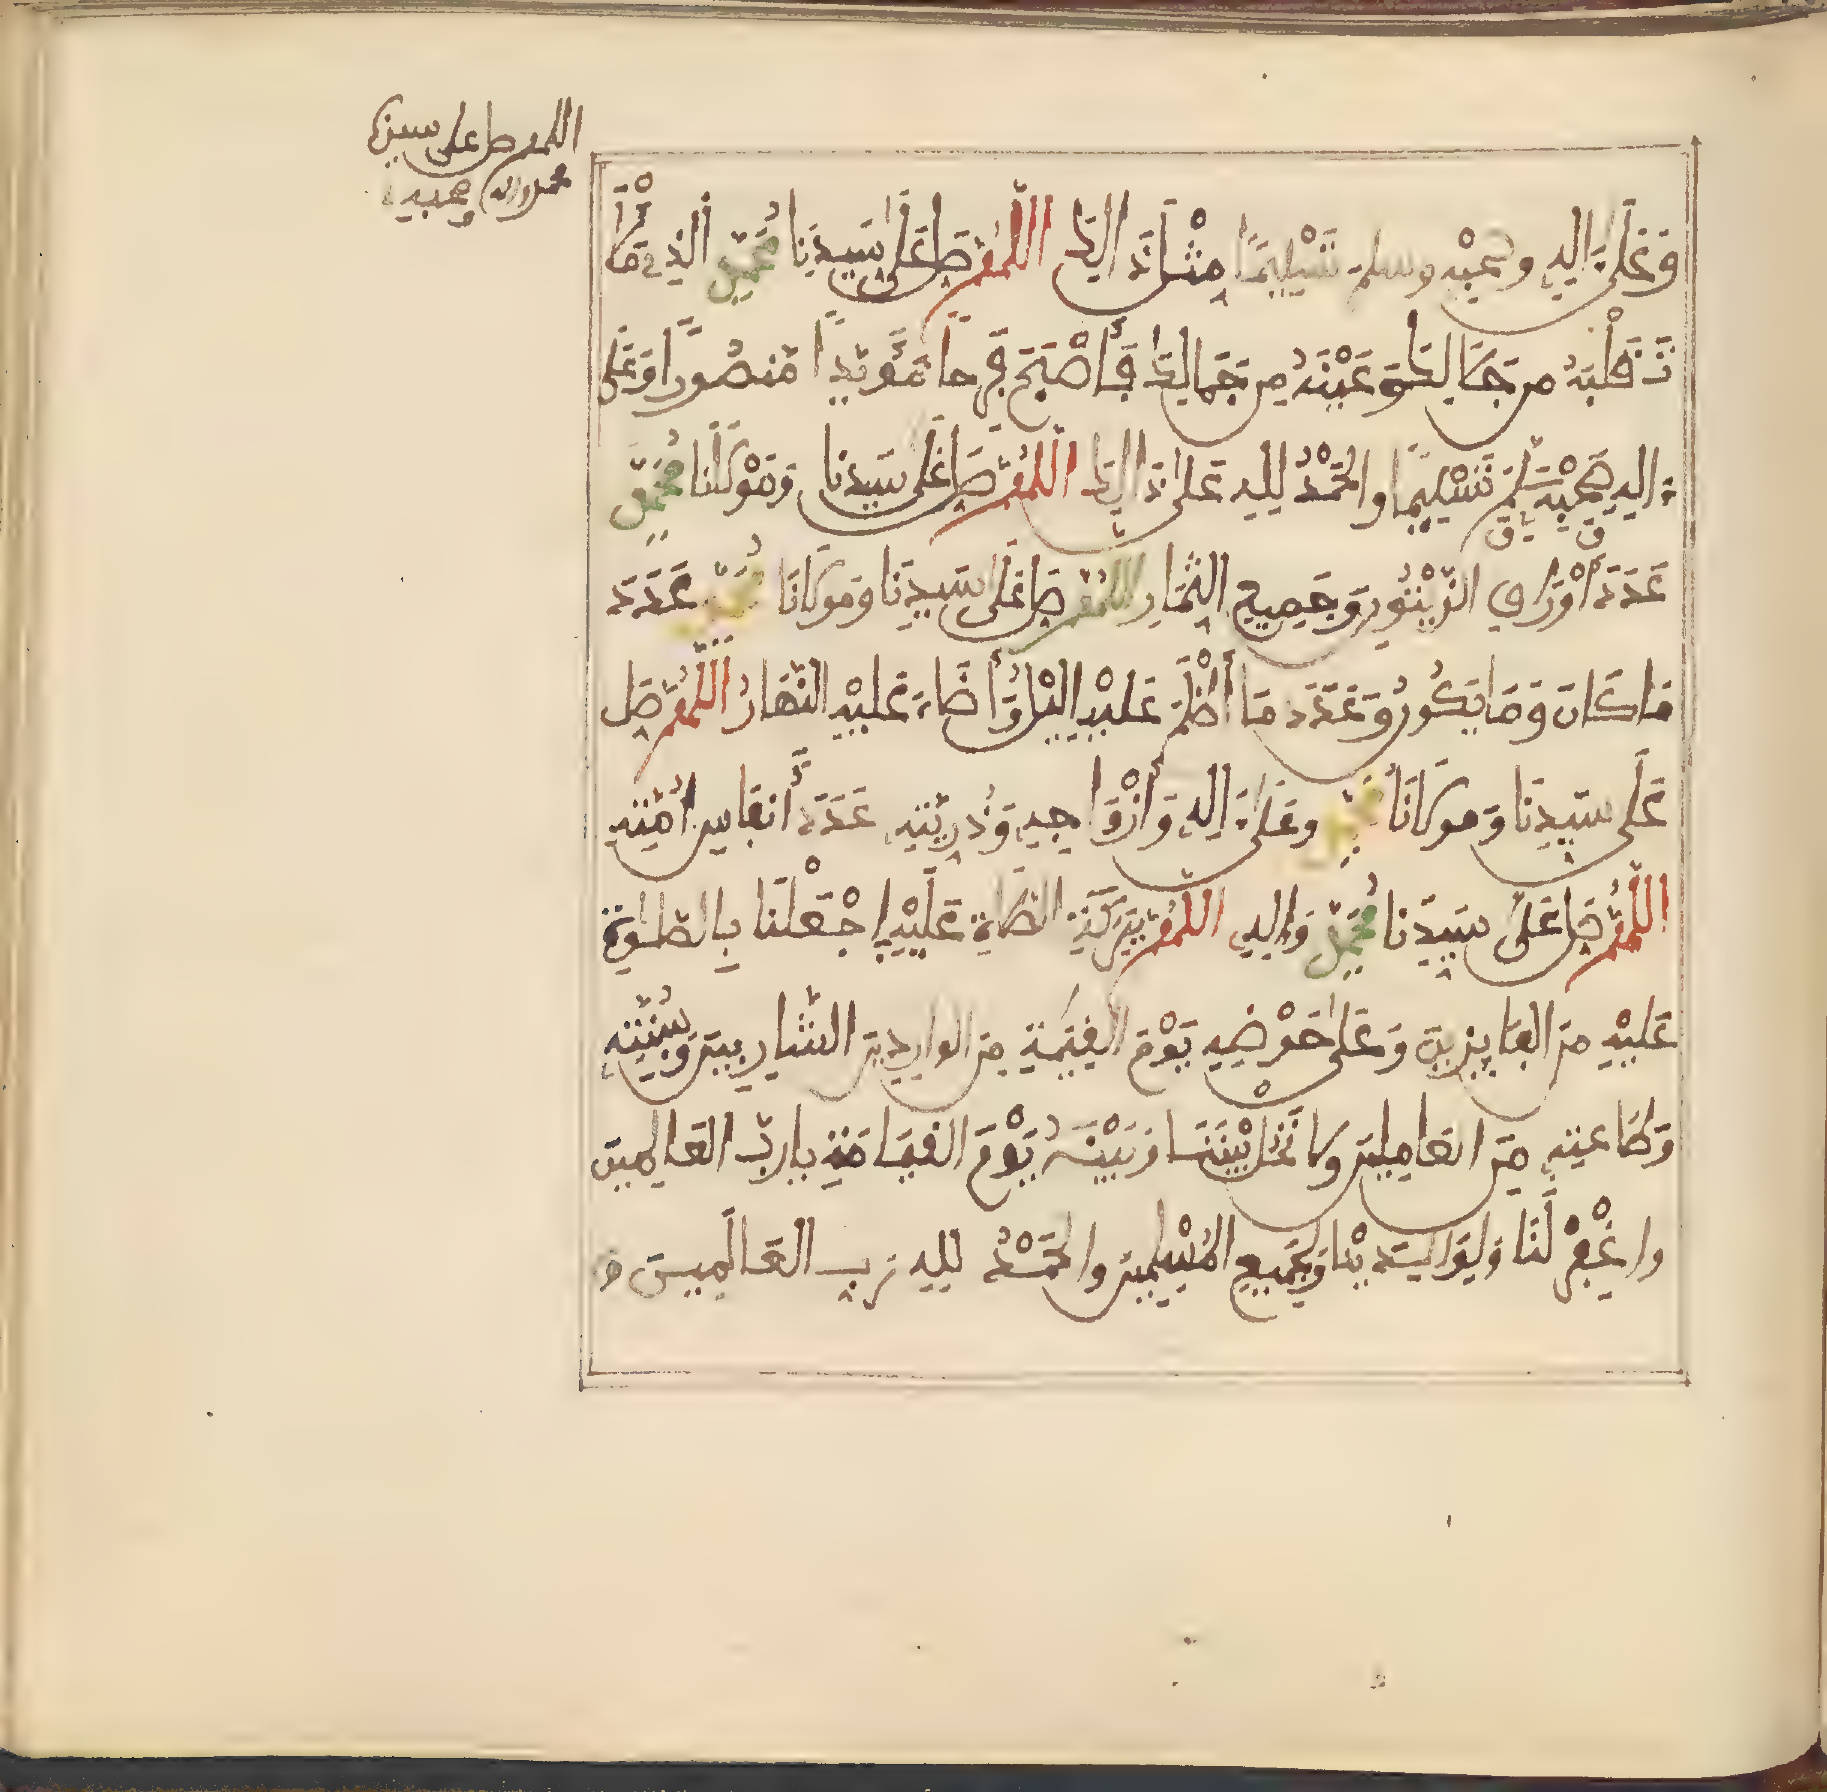 اللهم صل على سيدنا
محمد واله وصحبه
وَعَلَىٰ ءَالِهِ وصَحْبِهِ وسلم تَسْلِيمًا مِثْلَ ذَالِكَ اللَّهُمَّ صَلِّ عَلَىٰ سَيِّدِنَا مُحَمَّدٍ الَّذِے مَلَأْ
تَ قَلْبَهُ مِن جَلَالِكَ وَعَيْنَهُ مِن جَمَالِكَ فَأَصْبَحَ فَرِحاً مُّؤَيَّداً مَّنصُوراً وَعَلَى
ءَالِهِ صَحْبِهِ سَلِّمْ تَسْلِيمًا والحَمْدُ لِلهِ عَلَىٰ ذَالِكَ اللَّهُمَّ صَلِّ عَلَى سَيِّدِنَا وَمَوْلَانَا مُحَمَّدٍ
عَدَدَ أَوْرَاقِ الزَّيْتُونِ وَجَمِيعِ الثِّمَارِ اللَّهُمَّ صَلِّ عَلَىٰ سَيِّدِنَا وَمَوْلَانَا مُحَمَّدٍ عَدَدَ
مَا كَانَ وَمَا يَكُونُ وَعَدَدَ مَا أَظْلَمَ عَلَيْهِ اليْلُ وَأَضَاءَ عَلَيْهِ النَّهَارُ اللَّهُمَّ صَلِّ
عَلَى سَيِّدِنَا وَمَوْلَانَا مُحَمَّدٍ وعَلَىٰ ءَالِهِ وَأَزْوَاجِهِ وَذُرِّيَّتِهِ عَدَدَ أَنفَاسِ أُمَّتِهِ
اللَّهُمَّ صَلِّ عَلَىٰ سَيِّدِنَا مُحَمَّدٍ وَءَالِهِ اللَّهُمَّ بِبَرَكَةِ الصَّلَاةِ عَلَيْهِ اجْعَلْنَا بِالصَّلَوٰةِ
عَلَيْهِ مِنَ الفَائِزِينَ وَعَلَىٰ حَوْضِهِ يَوْمَ القِيَمَةِ مِنَ الوَارِدِينَ الشَّارِبِينَ وَبِسُنَّتِهِ
وَطَاعَتِهِ مِنَ العَامِلِينَ وَلَا تَحُلْ بَيْنَنَا وَبَيْنَهُ يَوْمَ القِيَامَةِ يا رَبَّ العَالَمِينَ
واغْفِرْ لَنَا وَلِوَالِدَيْنَا وَلِجَمِيعِ المُسْلِمِينَ والحَمْدُ لِلهِ رَبِّ العَالَمِينَ